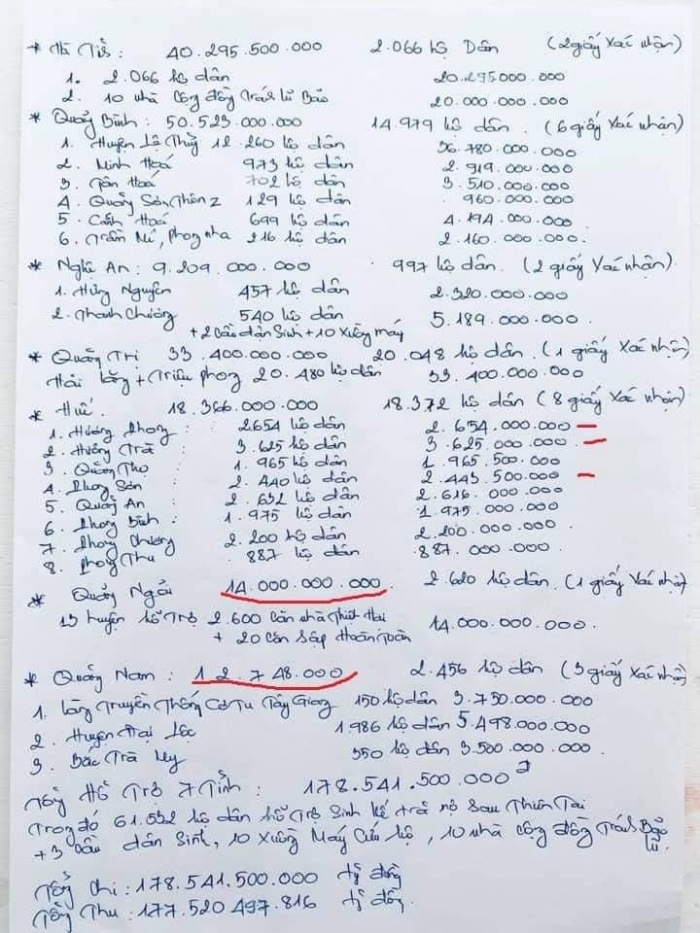 * Hà Tĩnh : 40.295.500.000 2.066 hộ Dân (2 giấy Xác nhận)
1. 2.066 hộ dân 20.295.000.000
2. 10 nhà Cộng đồng Tránh lũ Bão 20.000.000.000
* Quảng Bình : 50.523.000.000 14.979 hộ dân (6 giấy Xác nhận)
1. Huyện Lệ Thủy 12.260 hộ dân 36.780.000.000
2. Minh Hoá 973 hộ dân 2.919.000.000
3. Tân Hoá 702 hộ dân 3.510.000.000
4. Quảng Sơn Thôn 2 129 hộ dân 960.000.000
5. Cảnh Hoá 699 hộ dân 4.194.000.000
6. Trầm Mé, Phong nha 216 hộ dân 2.160.000.000
* Nghệ An : 9.209.000.000 997 hộ dân. (2 giấy Xác nhận)
1. Hưng Nguyên 457 hộ dân 2.320.000.000
2. Thanh Chương 540 hộ dân 5.189.000.000
+ 2 Cầu dân Sinh + 10 Xuồng máy
* Quảng Trị 33.400.000.000 20.048 hộ dân. (1 giấy Xác nhận)
Hải lăng + Triệu phong 20.480 hộ dân 33.400.000.000
* Huế. 18.366.000.000 18.372 hộ dân (8 giấy Xác nhận)
1. Hương Phong : 2654 hộ dân 2.654.000.000
2. Hương Trà : 3.625 hộ dân 3.625.000.000.
3. Quảng Thọ 1.965 hộ dân 1.965.500.000
4. Phong Sơn : 2.440 hộ dân 2.443.500.000
5. Quảng An : 2.632 hộ dân 2.616.000.000
6. Phong Bình : 1.975 hộ dân 1.975.000.000
7. Phong Chương 2.200 hộ dân 2.200.000.000
8. Phong Thu 887 hộ dân 887.000.000
* Quảng Ngãi 14.000.000.000 2.620 hộ dân. (1 giấy Xác nhận)
13 huyện hỗ Trợ 2.600 Căn nhà Thiệt Hại 14.000.000.000.
+ 20 Căn Sập Hoàn Toàn
* Quảng Nam : 12.748.000 2.456 hộ dân (3 giấy Xác nhận)
1. làng Truyền Thống Cơ Tu Tây Giang 150 hộ dân 3.750.000.000
2. Huyện Đại Lộc 1.986 hộ dân 5.498.000.000
3. Bắc Trà My 350 hộ dân 3.500.000.000
Tổng Hỗ Trợ 7 Tỉnh : 178.541.500.000
Trong đó 61.532 hộ dân hỗ Trợ Sinh kế + trả nợ Sau Thiên Tai
+ 3 Cầu dân Sinh, 10 Xuồng Máy Cứu hộ, 10 nhà Cộng đồng Tránh Bão lũ
Tổng Chi : 178.541.500.000 tỷ đồng
Tổng Thu : 177.520.497.816 tỷ đồng.